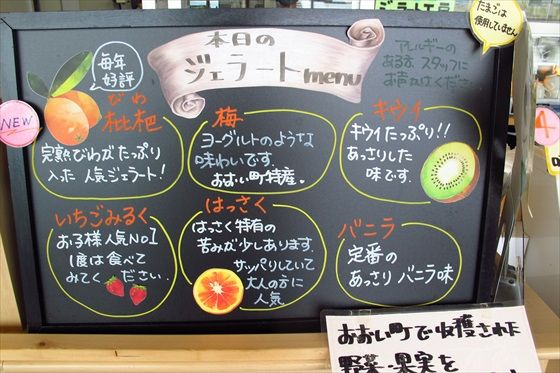 ジェラート工房
たまごは
使用していません
本日の
ジェラートmenu
アレルギーの
ある方 スタッフに
お声がけください
毎年
好評
NEW
びわ
枇杷
完熟びわがたっぷり
入った 人気ジェラート！
梅
ヨーグルトのような
味わいです。
おおい町特産。
キウイ
キウイたっぷり！！
あっさりした
味です。
いちごみるく
お子様人気No1
1度は食べて
みてください。
はっさく
はっさく特有の
苦みが少しあります
サッパリしていて
大人の方に
人気
バニラ
定番の
あっさりバニラ味
おおい町で収穫された
野菜・果実を